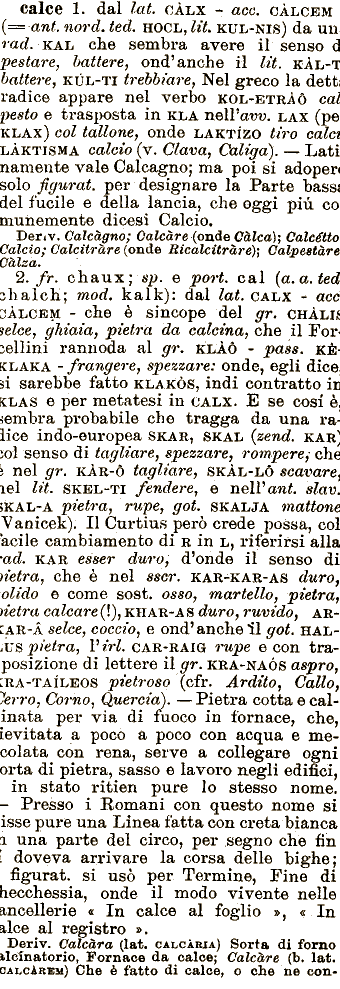 calce 1. dal lat. CÀLX - acc. CÀLCEM
(= ant. nord. ted. HOCL, lit. KUL-NIS) da un
rad. KAL che sembra avere il senso d
pestare, battere, ond'anche il lit. KÁL-T
battere, KÚL-TI trebbiare, Nel greco la dett
radice appare nel verbo KOL-ETRÀÔ cal
pesto e trasposta in KLA nell'avv. LAX (pe
KLAX) col tallone, onde LAKTÍZO tiro calci
LÀKTISMA calcio (v. Clava, Caliga). — Lati
namente vale Calcagno; ma poi si adoper
solo figurat. per designare la Parte bassa
del fucile e della lancia, che oggi più co
munemente dicesi Calcio.
Deriv. Calcàgno; Calcàre (onde Càlca); Calcétto
Calcio; Calcitràre (onde Ricalcitràre); Calpestàre
Càlza.
2. fr. chaux; sp. e port. cal (a. a. ted
chalch; mod. kalk): dal lat. CALX - acc
CÀLCEM - che è sincope del gr. CHÀLIS
selce, ghiaia, pietra da calcina, che il For-
cellini rannoda al gr. KLÀÔ - pass. KÈ-
KLAKA - frangere, spezzare: onde, egli dice,
si sarebbe fatto KLAKÒS, indi contratto in
KLAS e per metatesi in CALX. E se cosí è,
sembra probabile che tragga da una ra-
dice indo-europea SKAR, SKAL (zend. KAR)
col senso di tagliare, spezzare, rompere; che
è nel gr. KÀR-Ô tagliare, SKÀL-LÔ scavare,
nel lit. SKEL-TI fendere, e nell'ant. slav.
SKAL-A pietra, rupe, got. SKALJA mattone
(Vanicek). Il Curtius però crede possa, col
facile cambiamento di R in L, riferirsi alla
rad. KAR esser duro, d'onde il senso di
pietra, che è nel sscr. KAR-KAR-AS duro,
solido e come sost. osso, martello, pietra,
pietra calcare (!), KHAR-AS duro, ruvido, AR-
KAR-Â selce, coccio, e ond'anche il got. HAL-
LUS pietra, l'irl. CAR-RAIG rupe e con tra-
sposizione di lettere il gr. KRA-NAÓS aspro,
KRA-TAÍLEOS pietroso (cfr. Ardito, Callo,
Cerro, Corno, Quercia). — Pietra cotta e cal-
cinata per via di fuoco in fornace, che,
lievitata a poco a poco con acqua e me-
scolata con rena, serve a collegare ogni
sorta di pietra, sasso e lavoro negli edifici,
in stato ritien pure lo stesso nome.
— Presso i Romani con questo nome si
disse pure una Linea fatta con creta bianca
in una parte del circo, per segno che fin
lì doveva arrivare la corsa delle bighe;
figurat. si usò per Termine, Fine di
checchessia, onde il modo vivente nelle
cancellerie « In calce al foglio », « In
calce al registro ».
Deriv. Calcàra (lat. CALCÀRIA) Sorta di forno
calcinatorio, Fornace da calce; Calcàre (b. lat.
CALCÀREM) Che è fatto di calce, o che ne con-